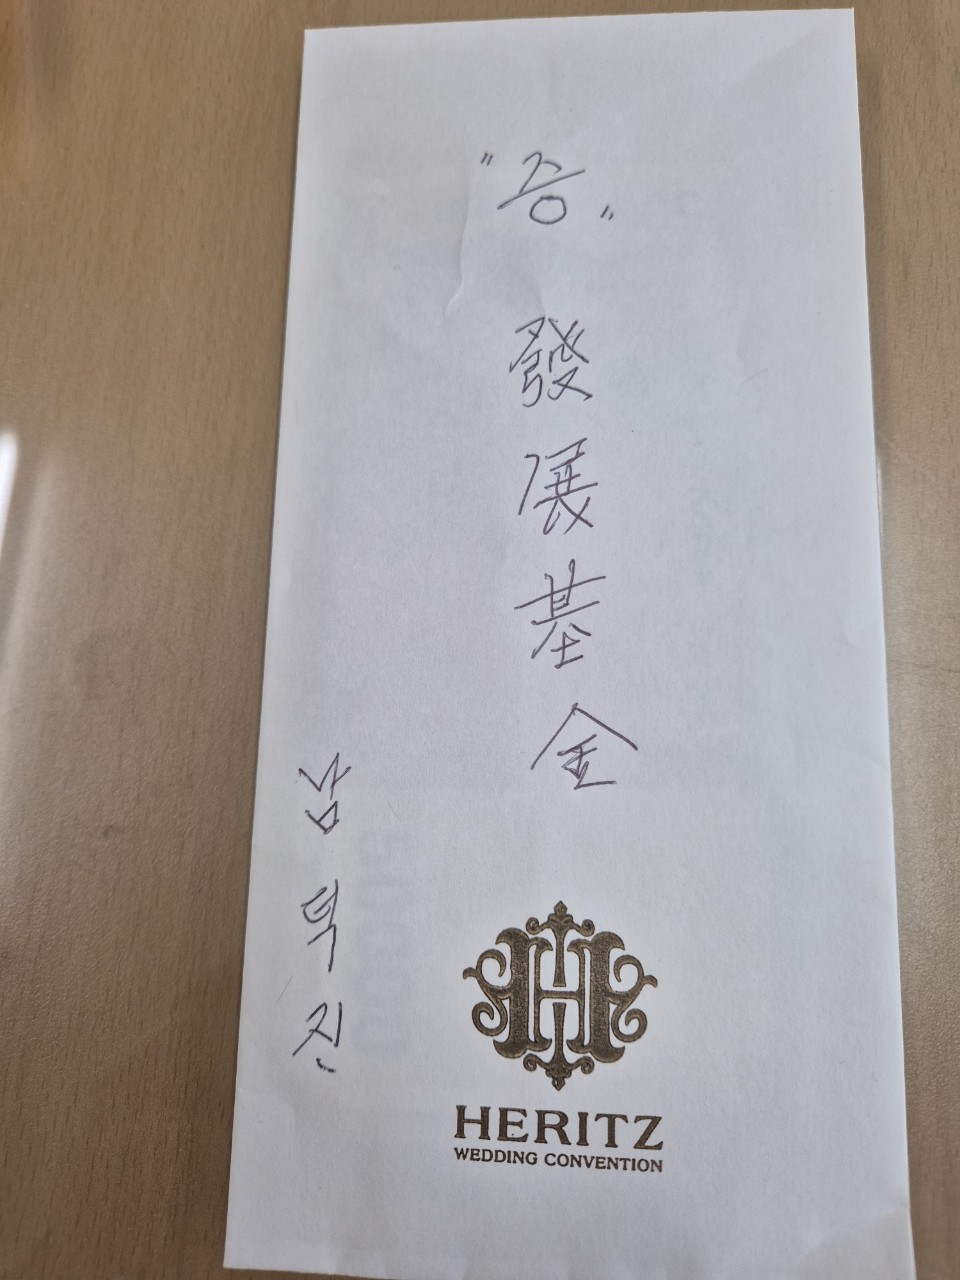 "증"
發展基金
남덕진
HERITZ
WEDDING CONVENTION